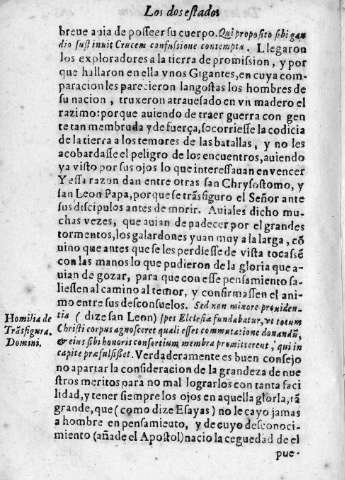 Los dos estados
breue auia de posseer su cuerpo. Qui proposito sibi gau
dio sustinuit Crucem confussione contempta. Llegaron
los exploradores a la tierra de promission, y por
que hallaron en ella vnos Gigantes, en cuya com
paracion les parecieron langostas los hombres de
su nacion, truxeron atrauesado en vn madero el
razimo: porque auiendo de traer guerra con gen
te tan membruda y de fuerça, socorriesse la codicia
de la tierra a los temores de las batallas, y no les
acobardasse el peligro de los encuentros, auiendo
ya visto por sus ojos lo que interessauan en vencer
Y essa razon dan entre otras san Chrysostomo, y
san Leon Papa, porque se trãsfiguro el Señor ante
sus discipulos antes de morir. Auiales dicho mu
chas vezes, que auian de padecer por el grandes
tormentos, los galardones yuan muy a la larga, cõ
uino que antes que se les perdiesse de vista tocassē
con las manos lo que pudieron de la gloria que a-
uian de gozar, para que con esse pensamiento sa-
liessen al camino al temor, y confirmassen el ani
mo entre sus desconsuelos. Sed non minore prouiden-
tia ( dize san Leon) spes Ecclesiæ fundabatur, vt totum
Christi corpus agnosceret quali esset commutatione donandũ,
& eius sibi honoris consortium membra promitterent, qui in
capite præfulsisset. Verdaderamente es buen consejo
no apartar la consideracion de la grandeza de nue
stros meritos para no mal lograrlos con tanta faci
lidad, y tener siempre los ojos en aquella gloria, tã
grande, que (como dize Esayas) no le cayo jamas
a hombre en pensamiento, y de cuyo desconoci-
miento (añade el Apostol) nacio la ceguedad de el
pue-
Homilia de
Trãsfigura.
Domini.